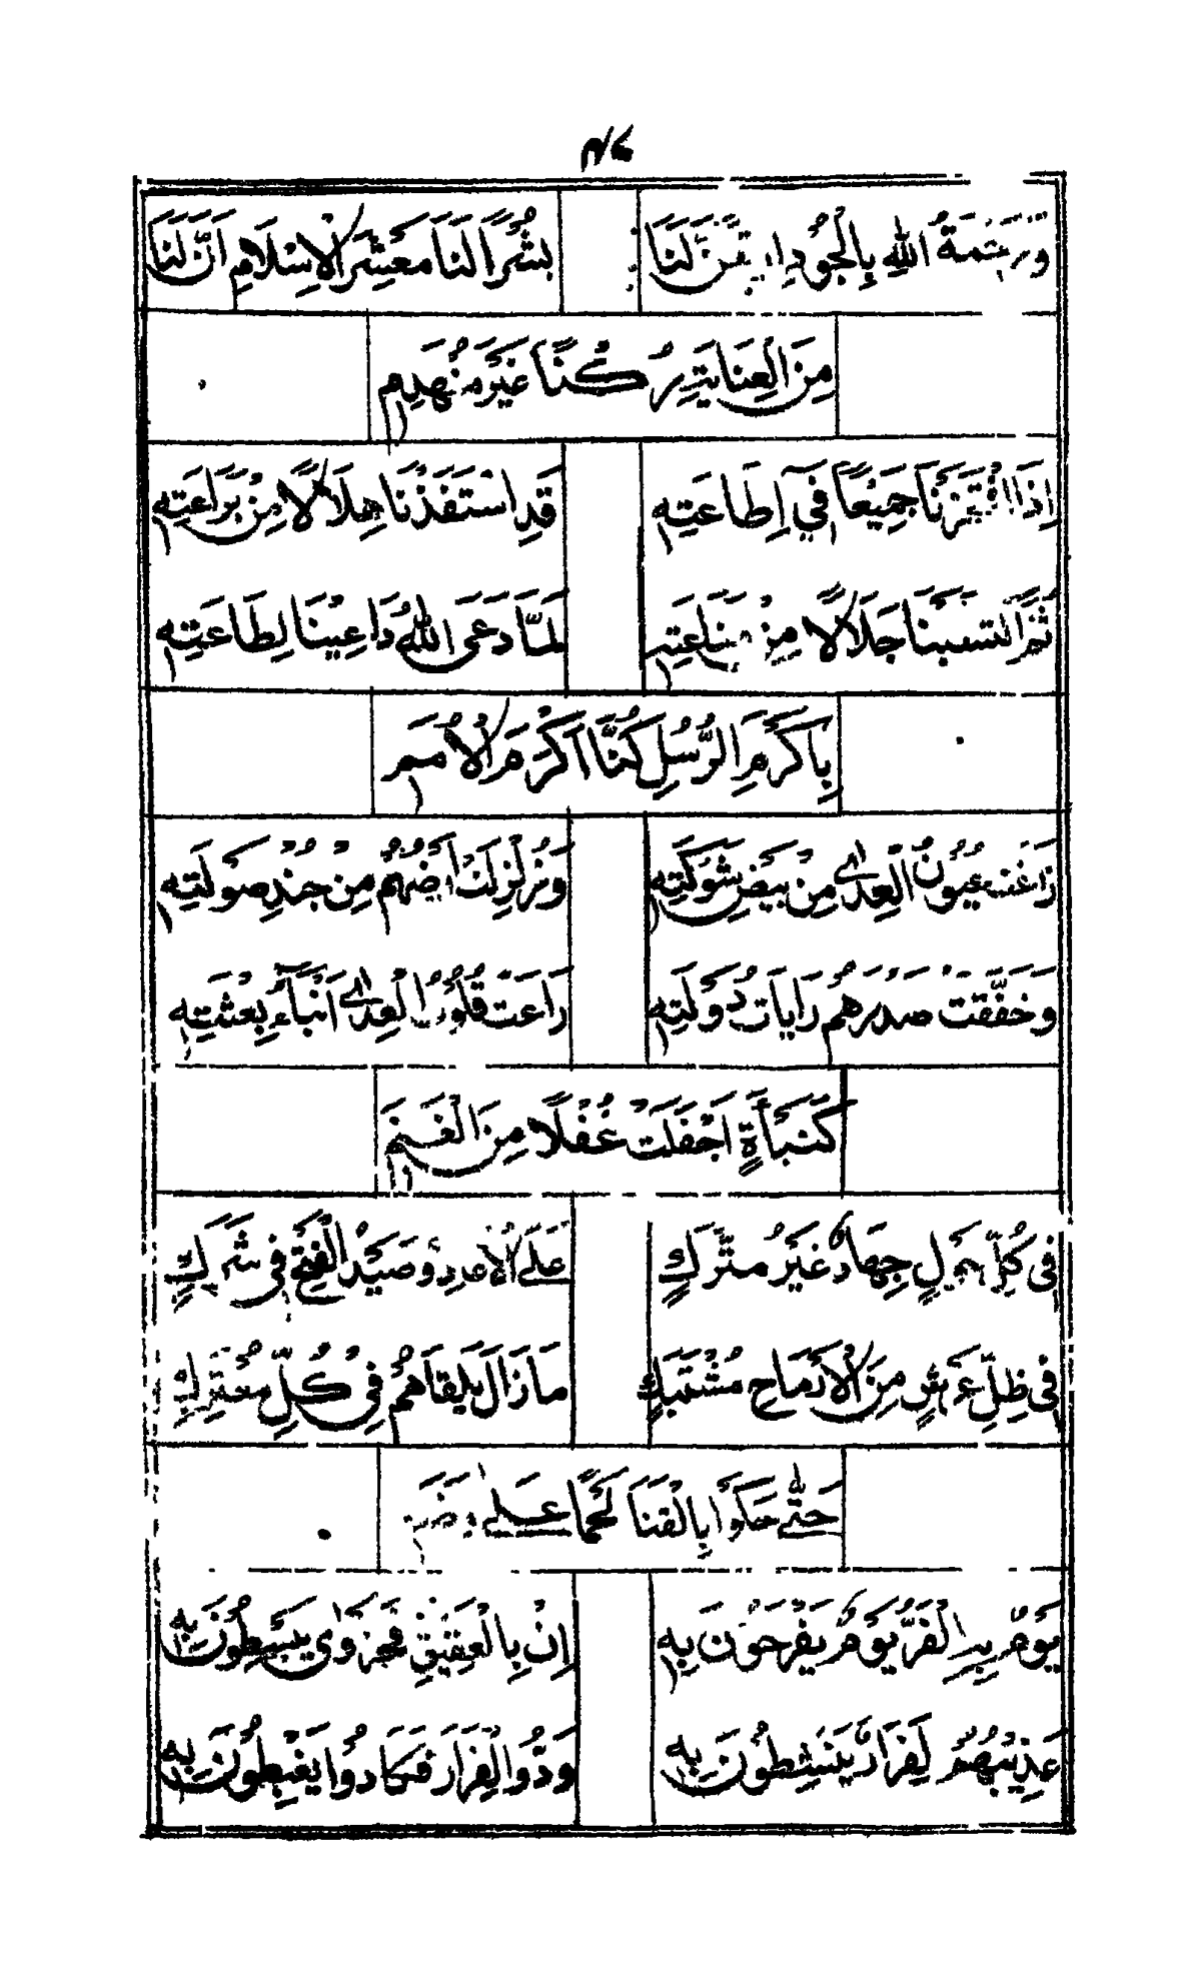 ورحمة الله بالجود لنا بُشْرَا لَنَا مَعْشَرَ الْاِسْلَامِ اَنَّ لَنَا
مِنَ الْعِنَايَةِ رُكْنًا غَيْرَ مُنْهَدِمِ
اِذَا جَمِيْعًا فِي اِطَاعَتِهِ قَدِ اسْتَفَذْنَا هِلَالًا مِنْ بَرَاعَتِهِ
ثُمَّ جَلَالًا مِنْ لَمَّا دَعَى اللهُ دَاعِيْنَا لِطَاعَتِهِ
بِاَكْرَمِ الرُّسُلِ كُنَّا اَكْرَمَ الْاُمَمِ
عُيُونُ الْعِدٰى مِنْ بَيْضِ شَوْكَتِهِ وَزُلْزِلَتْ اَرْضُهُمْ مِنْ جُنْدِ صَوْلَتِهِ
وَخَفَّقَتْ صَدْرَهُمْ رَايَاتُ دَوْلَتِهِ رَاعَتْ قُلُوْبَ الْعِدٰى اَنْبَاءُ بِعْثَتِهِ
كَنَبْأَةٍ اَجْفَلَتْ غُفْلًا مِنَ الْغَنَمِ
فِى كُلِّ جِهَادٍ غَيْرِ مُتَّرَكٍ عَلَى الْاَعْدَاءِ وَصَيْدُ الْفَتْحِ فِى شَرَكٍ
فِى ظِلِّ عَرْشٍ مِنَ الْاَرْمَاحِ مُشْتَبَكٍ مَازَالَ يَلْقَاهُمُ فِى كُلِّ مُعْتَرَكٍ
حَتّٰى حَكَوْا بِالْقَنَا لَحْمًا عَلٰى وَضَمِ
يَوْمُ الْفَرِّ يَوْمٌ يَفْرَحُوْنَ بِهِ اِنْ بِالْعَقِيْقِ يَبْسِطُوْنَ بِهِ
لَفِرَارٌ يَنْشِطُوْنَ بِهِ وَدُّوا الْفِرَارَ فَكَادُوْا يَغْبِطُوْنَ بِهِ